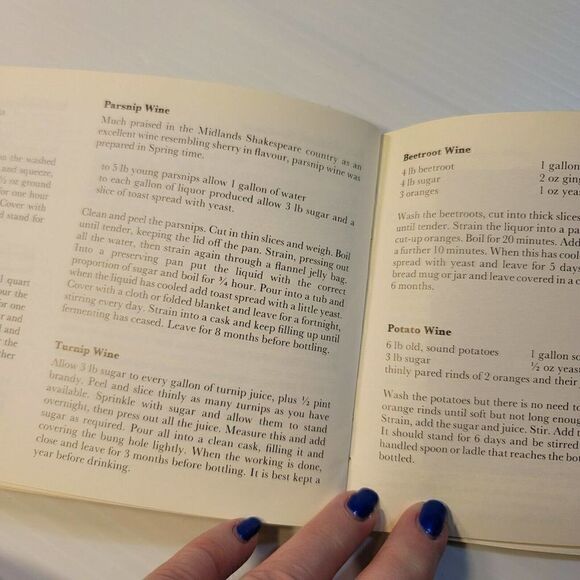 on the washed
and squeeze,
½ oz ground
for one hour
Cover with
d stand for
l quart
our the
for one
r and
l and
r the
ther
Parsnip Wine
Much praised in the Midlands Shakespeare country as an
excellent wine resembling sherry in flavour, parsnip wine was
prepared in Spring time.
to 5 lb young parsnips allow 1 gallon of water
to each gallon of liquor produced allow 3 lb sugar and a
slice of toast spread with yeast.
Clean and peel the parsnips. Cut in thin slices and weigh. Boil
until tender, keeping the lid off the pan. Strain, pressing out
all the water, then strain again through a flannel jelly bag.
Into a preserving pan put the liquid with the correct
proportion of sugar and boil for ¾ hour. Pour into a tub and
when the liquid has cooled add toast spread with a little yeast.
Cover with a cloth or folded blanket and leave for a fortnight,
stirring every day. Strain into a cask and keep filling up until
fermenting has ceased. Leave for 8 months before bottling.
Turnip Wine
Allow 3 lb sugar to every gallon of turnip juice, plus ½ pint
brandy. Peel and slice thinly as many turnips as you have
available. Sprinkle with sugar and allow them to stand
overnight, then press out all the juice. Measure this and add
sugar as required. Pour all into a clean cask, filling it and
covering the bung hole lightly. When the working is done,
close and leave for 3 months before bottling. It is best kept a
year before drinking.
Beetroot Wine
4 lb beetroot 1 gallon
4 lb sugar 2 oz ging
3 oranges 1 oz yea
Wash the beetroots, cut into thick slices
until tender. Strain the liquor into a pa
cut-up oranges. Boil for 20 minutes. Add
a further 10 minutes. When this has cool
spread with yeast and leave for 5 days
bread mug or jar and leave covered in a c
6 months.
Potato Wine
6 lb old, sound potatoes 1 gallon so
3 lb sugar ½ oz yeas
thinly pared rinds of 2 oranges and their
Wash the potatoes but there is no need to
orange rinds until soft but not long enoug
Strain, add the sugar and juice. Stir. Add t
It should stand for 6 days and be stirred
handled spoon or ladle that reaches the bot
bottled.